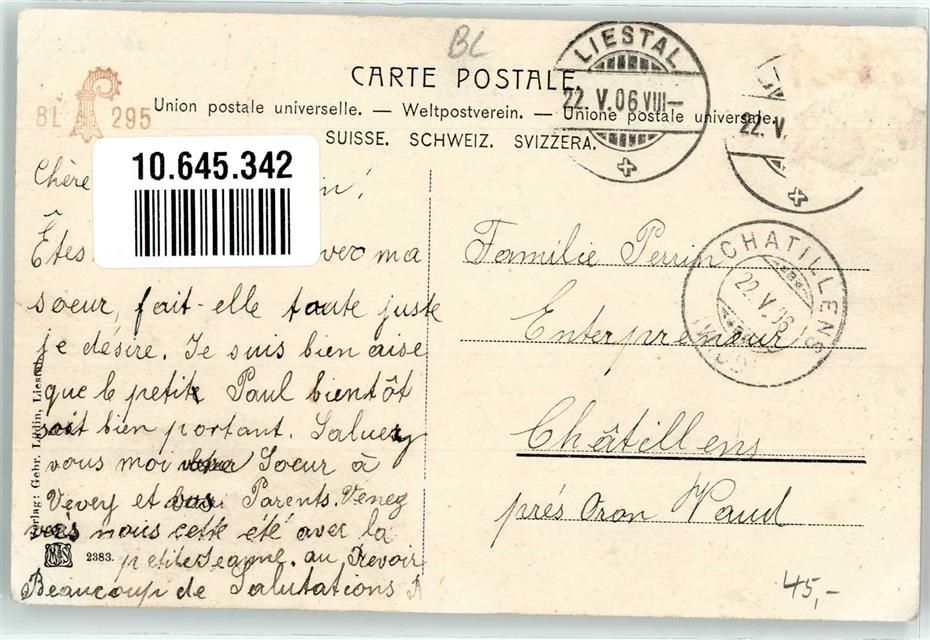 BL
CARTE POSTALE.
LIESTAL
22. V. 06. VIII—
22. V.
Union postale universelle. — Weltpostverein. — Unione postale universale.
SUISSE. SCHWEIZ. SVIZZERA.
BL 295
10.645.342
Chère
Êtes ma
soeur, fait-elle toute juste
je désire. Je suis bien aise
que le petit Paul bientôt
soit bien portant. Saluez
vous moi Soeur à
Vevey et vos Parents. Venez
nous cette été avec la
petite . au Revoir
Beaucoup de Salutations
Familie Perrin
Enterpreneur
Châtillens
prés Oron Vaud
CHATILLENS
22. V. 06
Verlag: Gebr. Lüdin, Liestal.
2383.
45,-